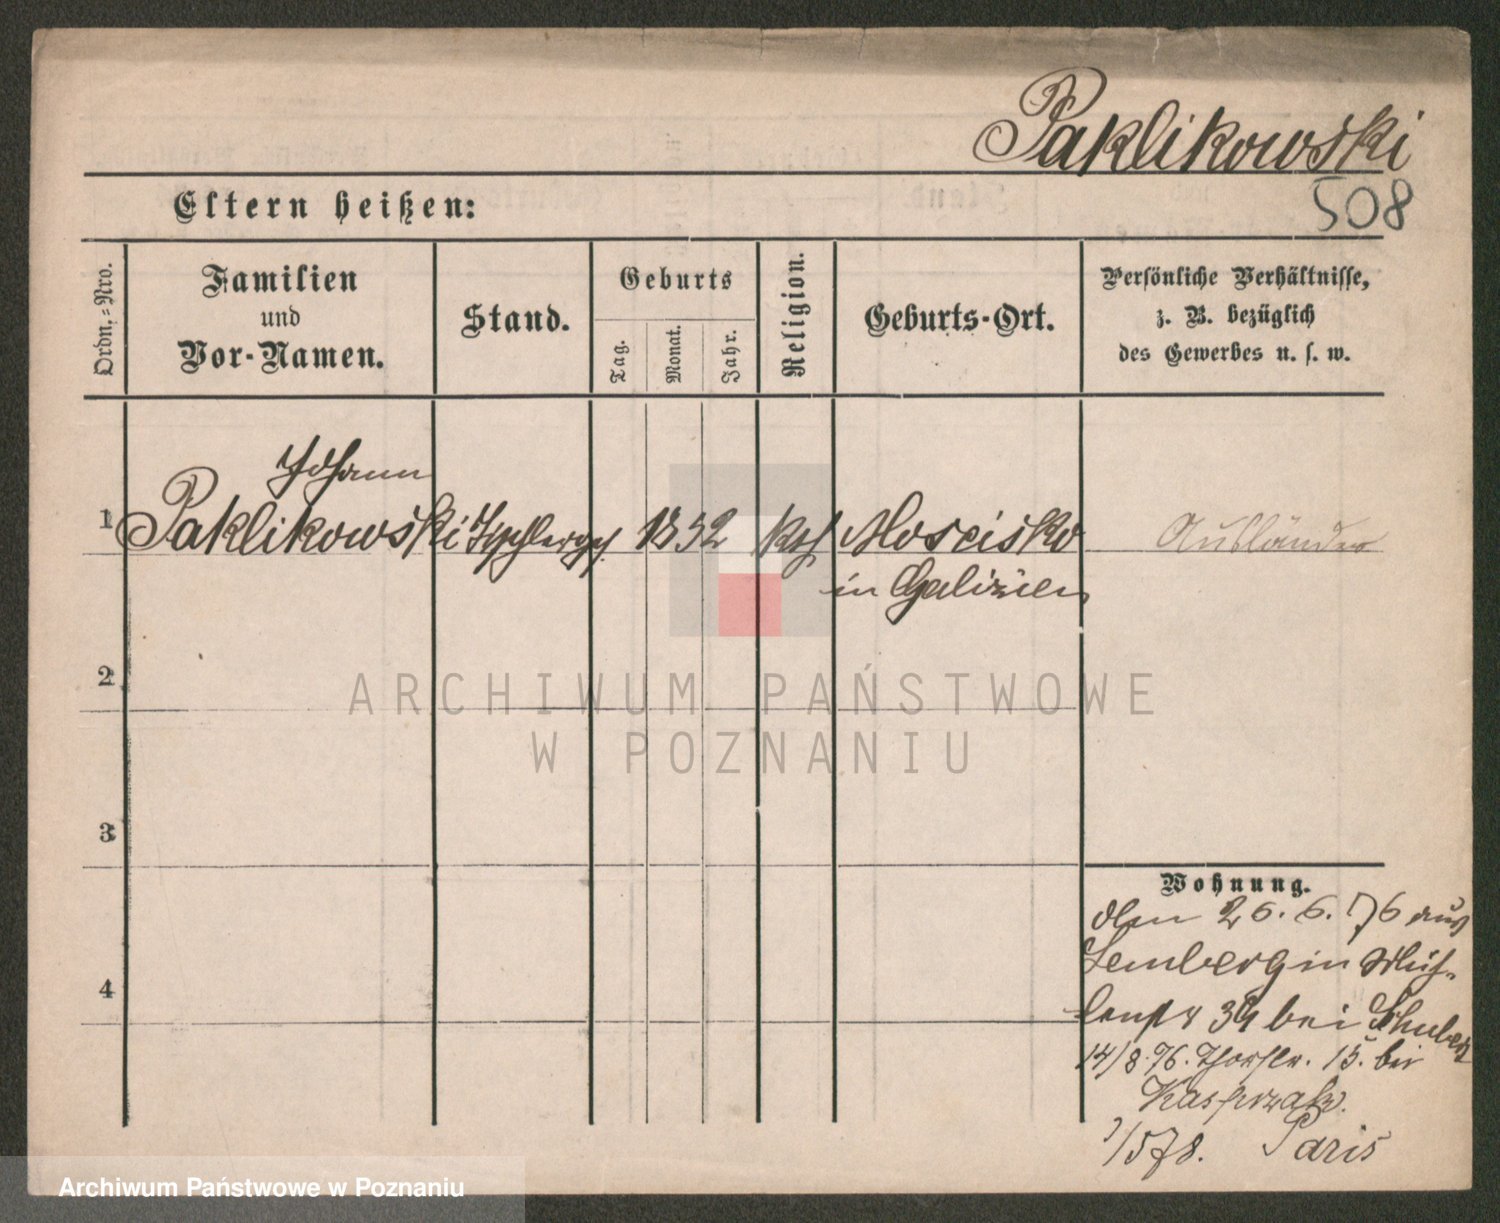 Paklikowski
508
Eltern heißen:
Ordn.-Nro.
Familien
und
Vor-Namen.
Stand.
Geburts
Tag.
Monat.
Jahr.
Religion.
Geburts-Ort.
Persönliche Verhältnisse,
z. B. bezüglich
des Gewerbes u. s. w.
Johann
1 Paklikowski Tischlerges. 1852 kth Mościsko Ausländer
in Galizien
2
3
4
Wohnung.
den 26. 6. 76 aus
Lemberg in Müh-
lenstr 34 bei
14/8 76. Thorstr. 15. bei
Kasprzak.
1/5 78. Paris
ARCHIWUM PAŃSTWOWE
W POZNANIU
Archiwum Państwowe w Poznaniu